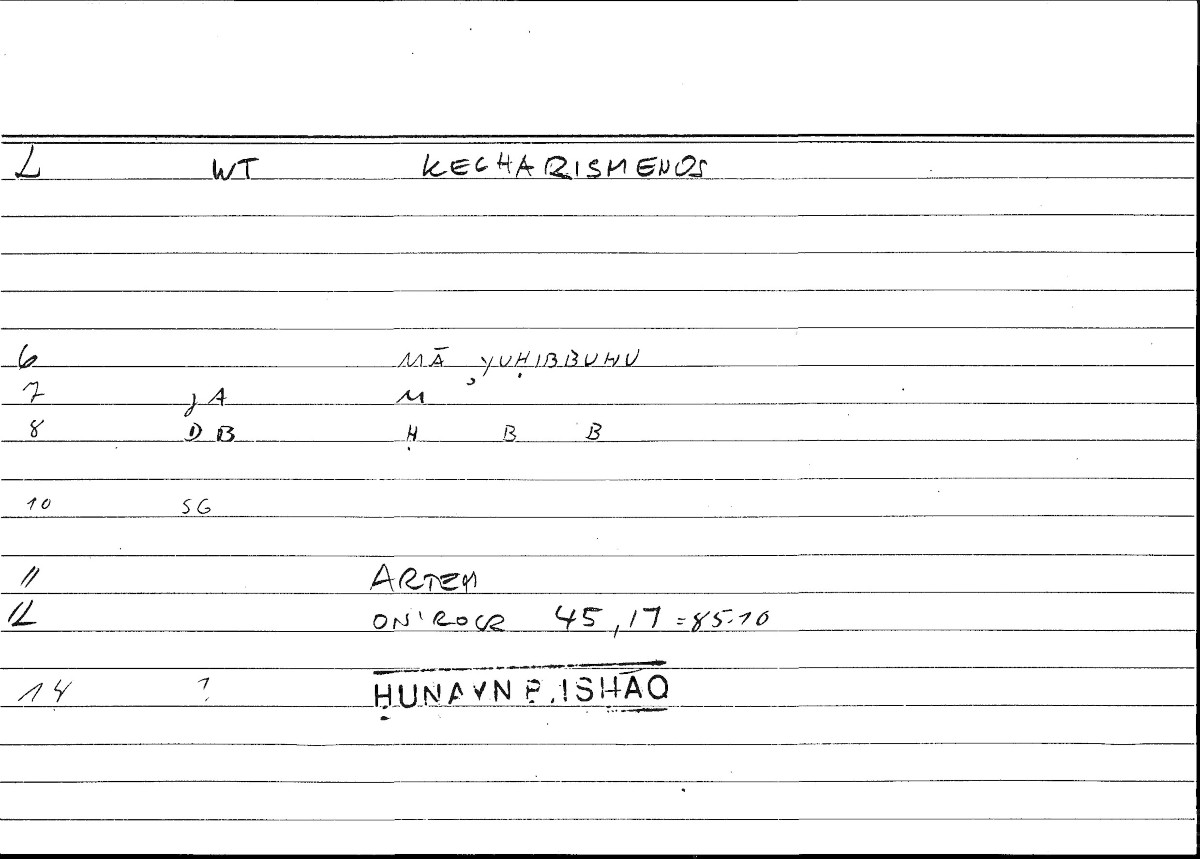 L WT KECHARISMENOS
6 MĀ YUḤIBBUHU
7 J A M
8 D B Ḥ B B
10 SG
11 ARTEM
12 ON'ROCR 45,17 = 85.10
14 ? ḤUNAYN B. ISḤĀQ